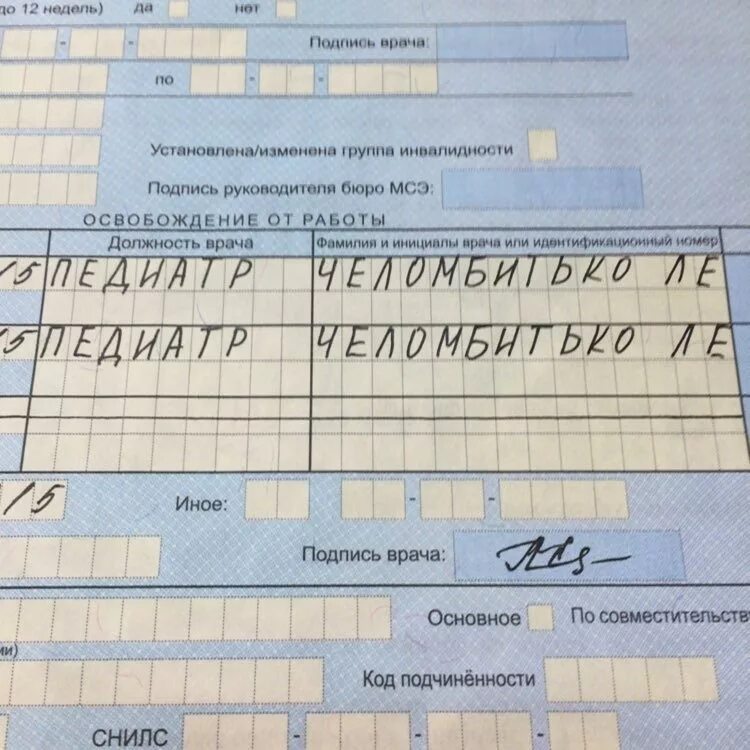 до 12 недель) да нет
- - Подпись врача:
по - -
Установлена/изменена группа инвалидности
Подпись руководителя бюро МСЭ:
ОСВОБОЖДЕНИЕ ОТ РАБОТЫ
Должность врача Фамилия и инициалы врача или идентификационный номер
15 ПЕДИАТР ЧЕЛОМБИТЬКО ЛЕ
15 ПЕДИАТР ЧЕЛОМБИТЬКО ЛЕ
15 Иное: - -
Подпись врача:
Основное По совместительств
ии)
Код подчинённости
СНИЛС - - -